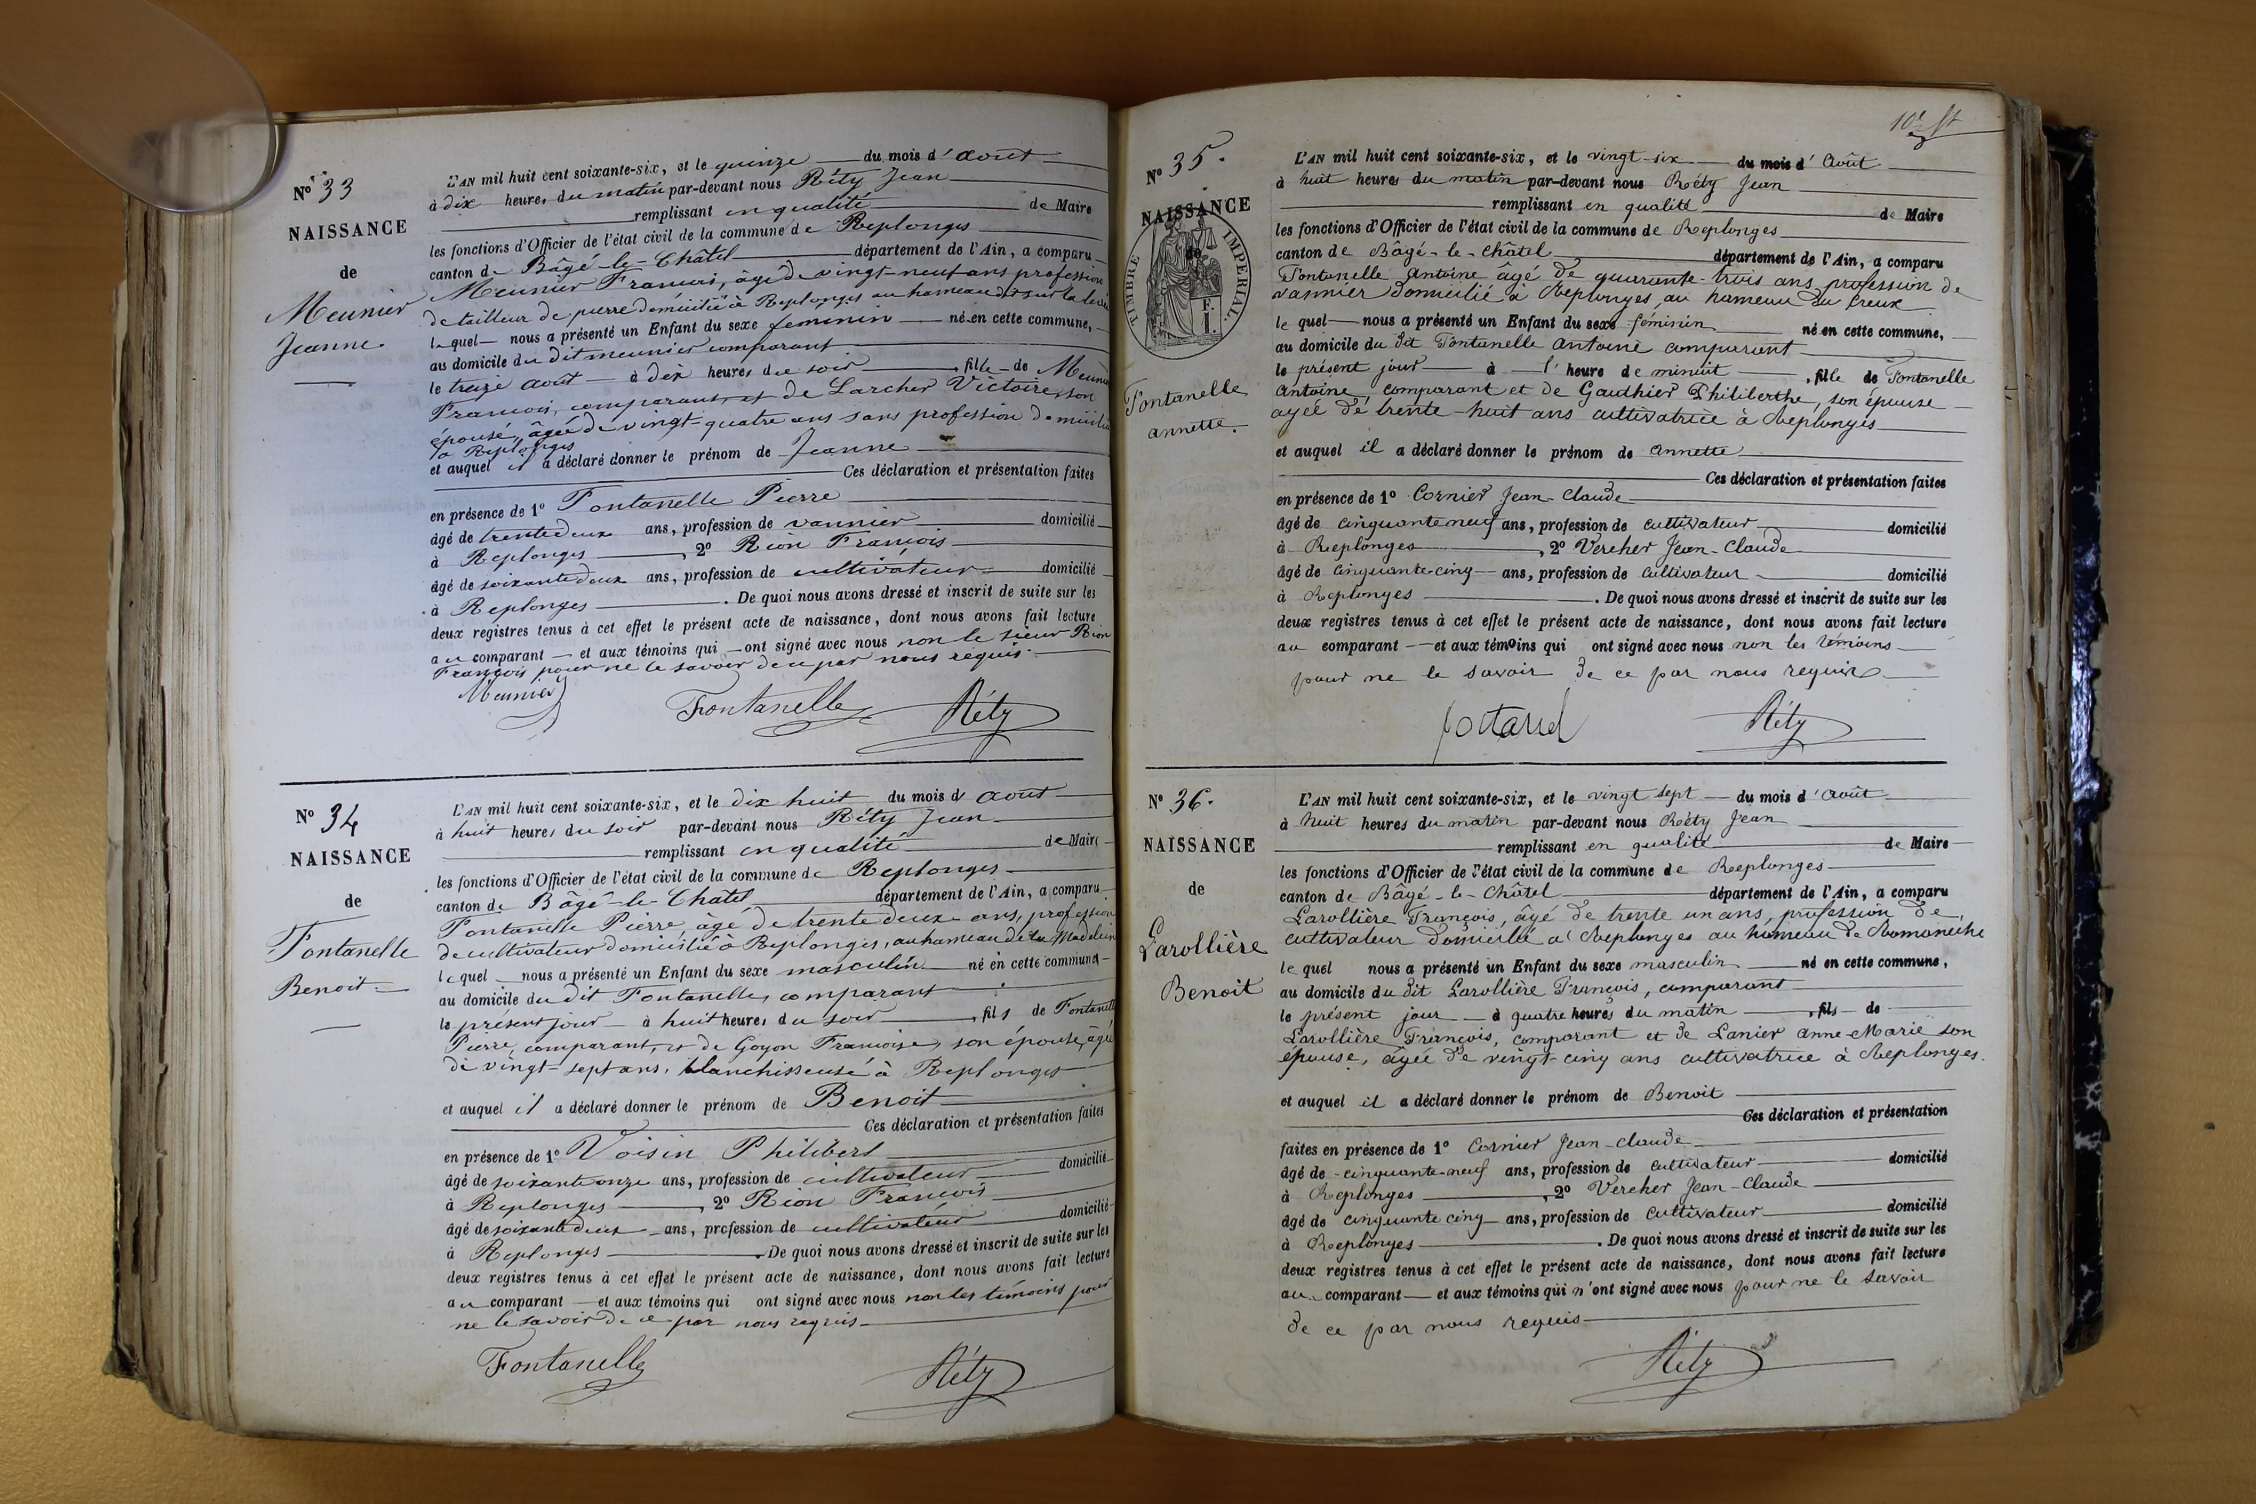 N° 33
NAISSANCE
de
Meunier
Jeanne
L'AN mil huit cent soixante-six, et le quinze du mois d'août
à dix heures du matin par-devant nous Réty Jean
remplissant en qualité de Maire
les fonctions d'Officier de l'état civil de la commune de Replonges
canton de Bâgé-le-Châtel département de l'Ain, a comparu
Meunier François, âgé de vingt-neuf ans profession
de tailleur de pierre domicilié à Replonges au hameau dit sur la levée
lequel nous a présenté un Enfant du sexe feminin né en cette commune,
au domicile du dit meunier comparant
le treize août à dix heures du soir, fille de Meunier
François, comparant, et de Larcher Victoire, son
épouse, âgée de vingt-quatre ans sans profession domiciliée
à Replonges
et auquel il a déclaré donner le prénom de Jeanne
Ces déclaration et présentation faites
en présence de 1° Fontanelle Pierre
âgé de trente deux ans, profession de vannier domicilié
à Replonges, 2° Rion François
âgé de soixante deux ans, profession de cultivateur domicilié
à Replonges. De quoi nous avons dressé et inscrit de suite sur les
deux registres tenus à cet effet le présent acte de naissance, dont nous avons fait lecture
au comparant et aux témoins qui ont signé avec nous non le sieur Rion
François pour ne le savoir de ce par nous requis.
Meunier Fontanelle Réty
N° 34
NAISSANCE
de
Fontanelle
Benoit
L'AN mil huit cent soixante-six, et le dix huit du mois d août
à huit heures du soir par-devant nous Réty Jean
remplissant en qualité de Maire
les fonctions d'Officier de l'état civil de la commune de Replonges
canton de Bâgé-le-Châtel département de l'Ain, a comparu
Fontanelle Pierre, âgé de trente deux ans, profession
de cultivateur domicilié à Replonges, au hameau de la Madeleine
lequel nous a présenté un Enfant du sexe masculin né en cette commune
au domicile du dit Fontanelle, comparant
le présent jour à huit heures du soir, fils de Fontanelle
Pierre, comparant, et de Goyon Françoise, son épouse, âgée
de vingt-sept ans, blanchisseuse à Replonges
et auquel il a déclaré donner le prénom de Benoit
Ces déclaration et présentation faites
en présence de 1° Voisin Philibert
âgé de soixante onze ans, profession de cultivateur domicilié
à Replonges, 2° Rion François
âgé de soixante deux ans, profession de cultivateur domicilié
à Replonges. De quoi nous avons dressé et inscrit de suite sur les
deux registres tenus à cet effet le présent acte de naissance, dont nous avons fait lecture
au comparant et aux témoins qui ont signé avec nous non les témoins pour
ne le savoir de ce par nous requis
Fontanelle Réty
N° 35.
NAISSANCE
de
TIMBRE IMPERIAL
Fontanelle
annette.
L'AN mil huit cent soixante-six, et le vingt-six du mois d'Août
à huit heures du matin par-devant nous Réty Jean
remplissant en qualité de Maire
les fonctions d'Officier de l'état civil de la commune de Replonges
canton de Bâgé-le-Châtel département de l'Ain, a comparu
Fontanelle Antoine âgé de quarante-trois ans, profession de
vannier domicilié à Replonges, au hameau du Creux
le quel nous a présenté un Enfant du sexe féminin né en cette commune,
au domicile du dit Fontanelle Antoine comparant
le présent jour à l'heure de minuit, fille de Fontanelle
Antoine, comparant et de Gauthier Philiberthe, son épouse
agée de trente-huit ans cultivatrice à Replonges
et auquel il a déclaré donner le prénom de annette
Ces déclaration et présentation faites
en présence de 1° Cornier Jean-Claude
âgé de cinquante neuf ans, profession de cultivateur domicilié
à Replonges, 2° Vercher Jean-Claude
âgé de cinquante cinq ans, profession de cultivateur domicilié
à Replonges. De quoi nous avons dressé et inscrit de suite sur les
deux registres tenus à cet effet le présent acte de naissance, dont nous avons fait lecture
au comparant et aux témoins qui ont signé avec nous non les témoins
pour ne le savoir de ce par nous requis
Réty
N° 36.
NAISSANCE
de
Larollière
Benoit
L'AN mil huit cent soixante-six, et le vingt sept du mois d'août
à huit heures du matin par-devant nous Réty Jean
remplissant en qualité de Maire
les fonctions d'Officier de l'état civil de la commune de Replonges
canton de Bâgé-le-Châtel département de l'Ain, a comparu
Larollière François, âgé de trente un ans, profession de
cultivateur domicilié à Replonges au hameau de Romaneche
le quel nous a présenté un Enfant du sexe masculin né en cette commune,
au domicile du dit Larollière François, comparant
le présent jour à quatre heures du matin, fils de
Larollière François, comparant et de Lanier anne-Marie son
épouse, âgée de vingt-cinq ans cultivatrice à Replonges.
et auquel il a déclaré donner le prénom de Benoit
Ces déclaration et présentation
faites en présence de 1° Cornier Jean-claude
âgé de cinquante-neuf ans, profession de cultivateur domicilié
à Replonges, 2° Vercher Jean-Claude
âgé de cinquante cinq ans, profession de cultivateur domicilié
à Replonges. De quoi nous avons dressé et inscrit de suite sur les
deux registres tenus à cet effet le présent acte de naissance, dont nous avons fait lecture
au comparant et aux témoins qui n'ont signé avec nous pour ne le savoir
de ce par nous requis
Réty